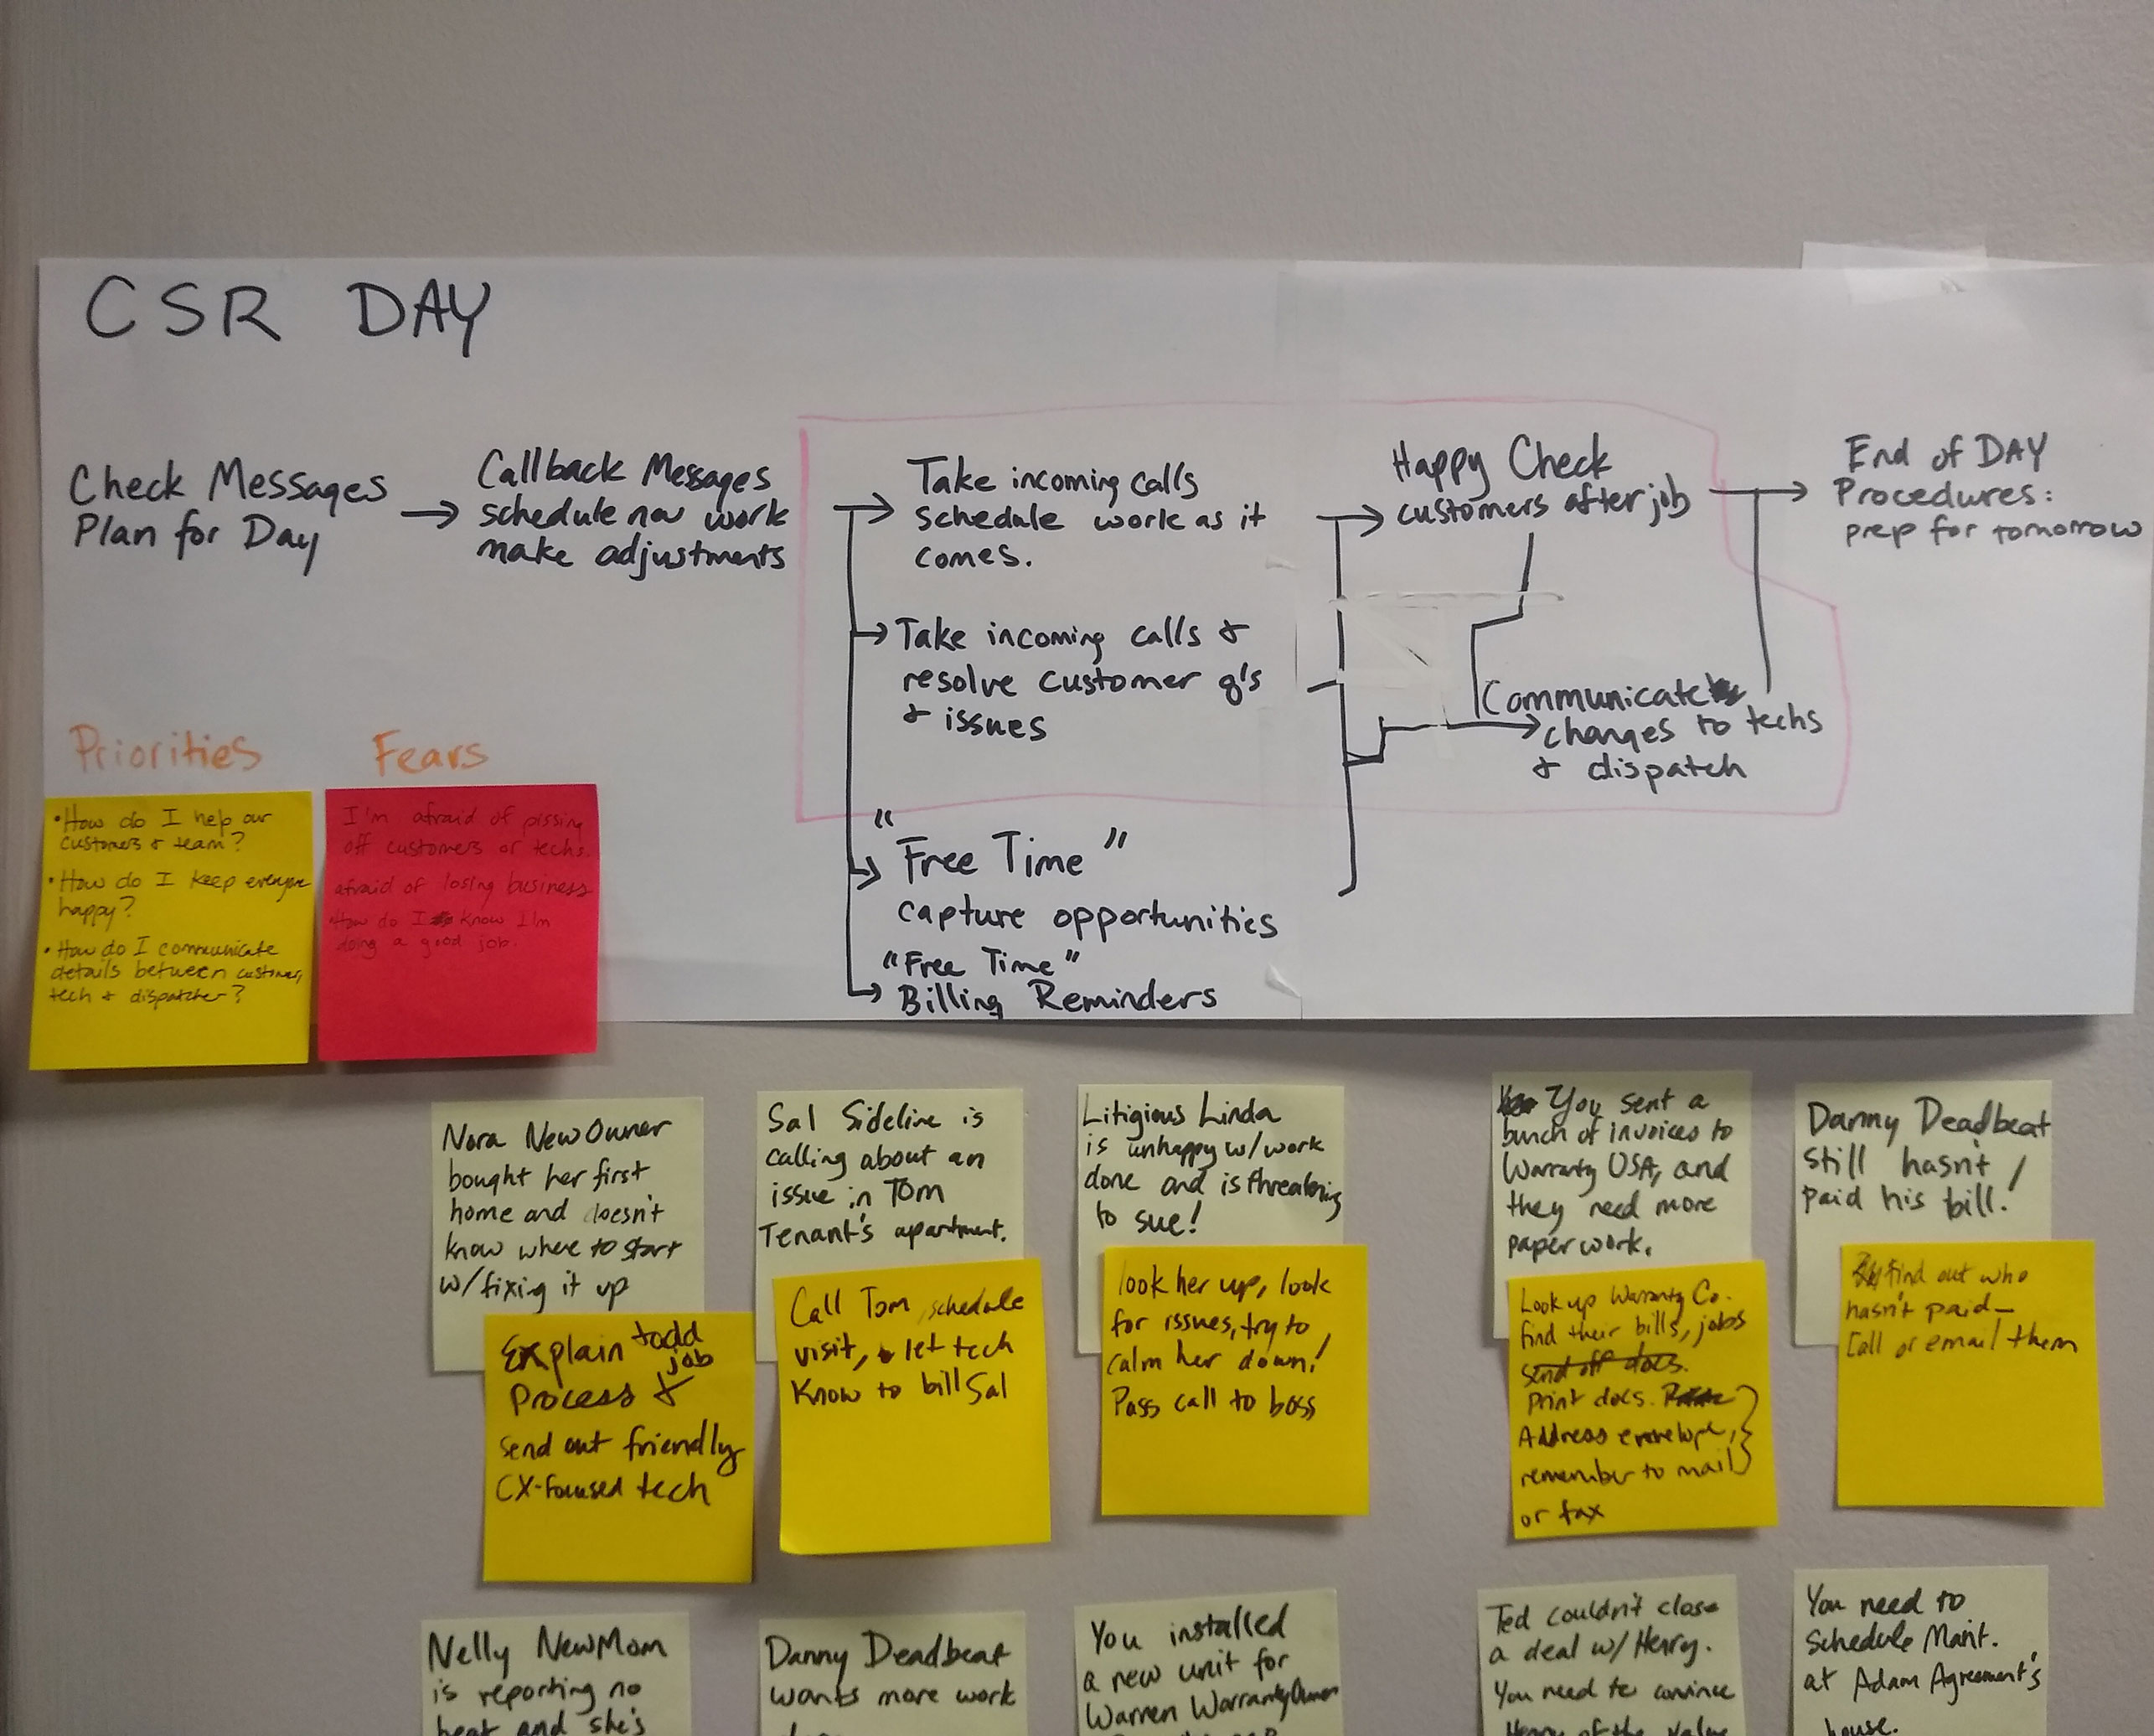 CSR DAY
Check Messages
Plan for Day
Callback Messages
schedule new work
make adjustments
Take incoming calls
schedule work as it
comes.
Take incoming calls &
resolve customer q's
& issues
"Free Time"
capture opportunities
"Free Time"
Billing Reminders
Happy Check
customers after job
Communicate
changes to techs
& dispatch
End of DAY
Procedures:
prep for tomorrow
Priorities
• How do I help our
customers & team?
• How do I keep everyone
happy?
• How do I communicate
details between customer,
tech & dispatcher?
Fears
I'm afraid of pissing
off customers or techs.
afraid of losing business
How do I know I'm
doing a good job.
Nora NewOwner
bought her first
home and doesn't
know where to start
w/fixing it up
Explain todd
job
Process &
send out friendly
CX-focused tech
Sal Sideline is
calling about an
issue in Tom
Tenant's apartment.
Call Tom, schedule
visit, let tech
know to bill Sal
Litigious Linda
is unhappy w/work
done and is threatening
to sue!
look her up, look
for issues, try to
calm her down!
Pass call to boss
You sent a
bunch of invoices to
Warranty USA, and
they need more
paperwork.
Look up Warranty Co.
find their bills, jobs
send off docs.
Print docs.
Address envelope,
remember to mail
or fax
Danny Deadbeat
still hasn't
paid his bill!
find out who
hasn't paid—
Call or email them
Nelly NewMom
is reporting no
heat and she's
Danny Deadbeat
wants more work
You installed
a new unit for
Warren WarrantyOwner
Ted couldn't close
a deal w/ Henry.
You need to convince
Henry of the value
You need to
Schedule Maint.
at Adam Agreement's
house.